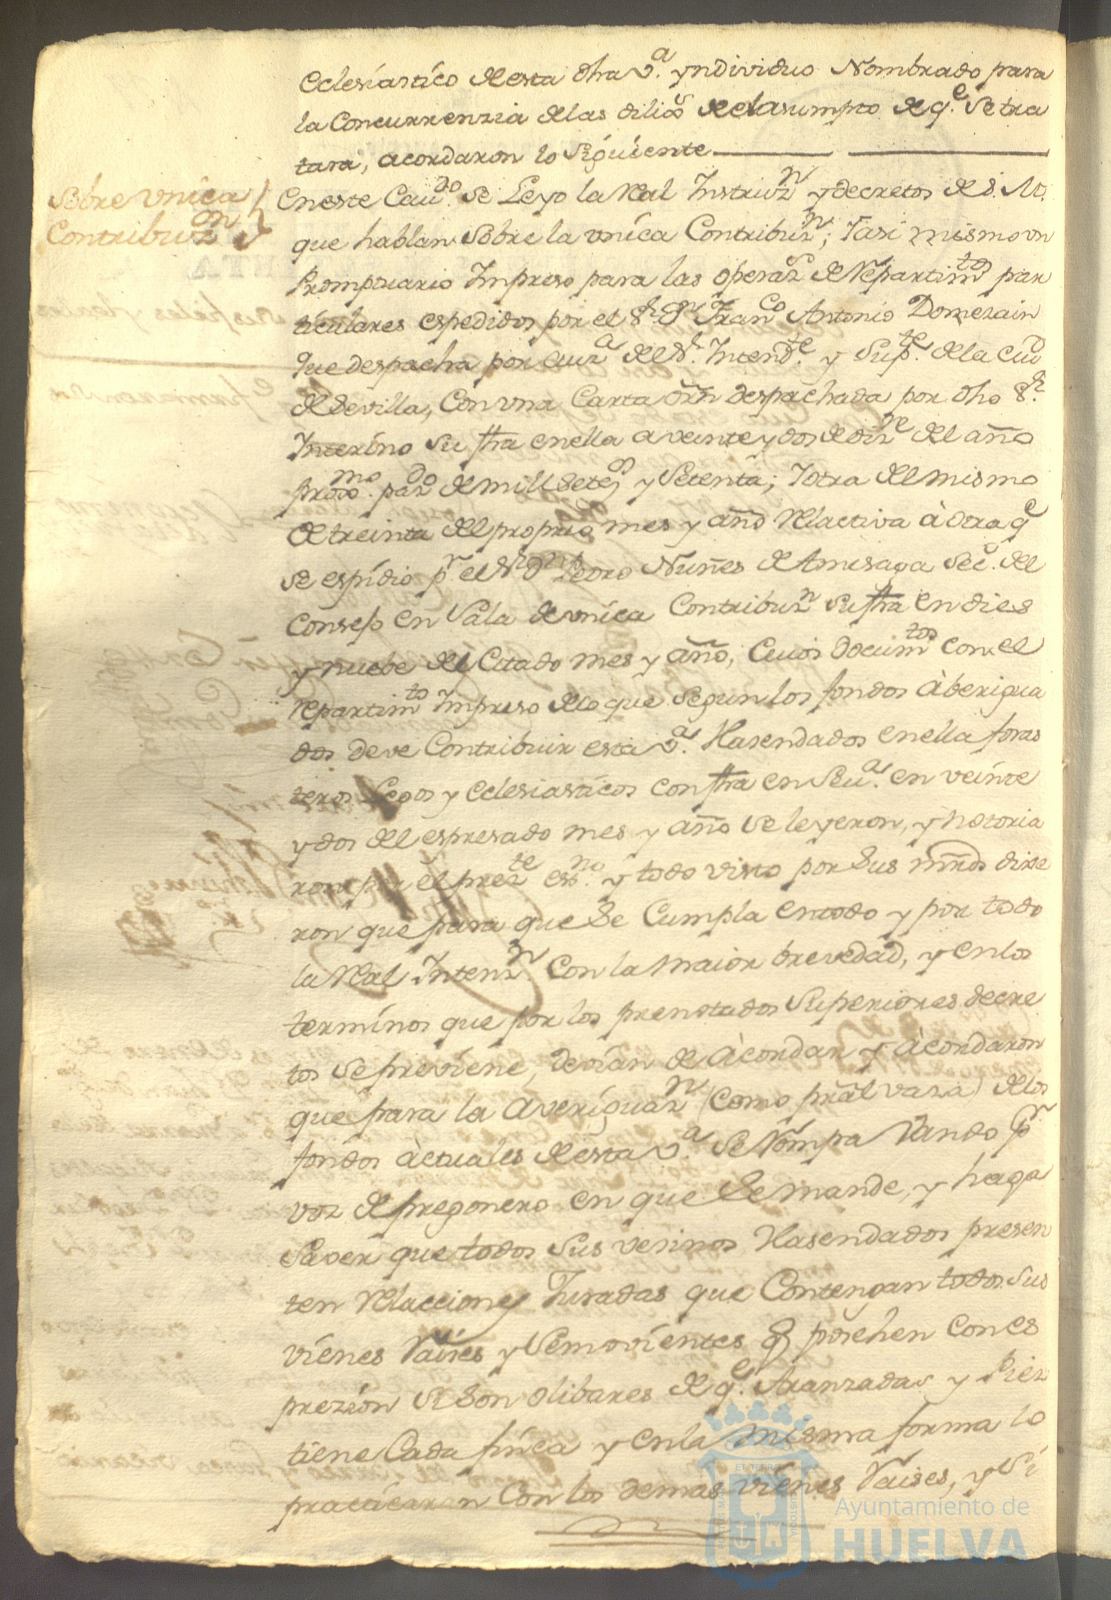 Eclesiastico de esta dha v.ª yndividuo Nombrado para
la Concurrenzia de las dilig.s del asumpto de q.e se tra
tara, acordaron lo siguiente
Sobre Vnica
Contribuz.on
En este Cau.do se Leyo la Real Instruz.n y decretos de S. M.
que hablan sobre la vnica Contribuz.n; Y asi mismo vn
Prompuario Impreso para las operaz.s de Repartim.tos par
ticulares espedidos por el S.r Dn Fran.co Antonio Domezain
que despacha por aus.a del S.r Intend.te y Sup.te de la Ciu.d
de Sevilla, Con vna Carta orn despachada por dho S.r
Interino su fha en ella a veinte y dos de diz.e del año
proxo. pas.do de mill setez.s y Setenta; Y otra del mismo
de treinta del proprio mes y año Relactiva à otra q.e
se espidio p.r el S.r Dn Pedro Nuñes de Amesaga Sec.o del
Consejo en Sala de vnica Contribuz.n su fha en dies
y nuebe del Citado mes y año, Cuios docum.tos con el
Repartim.to Impreso de lo que segun los fondos àberigua
dos deve Contribuir esta v.ª Hasendados en ella foras
teros Legos y eclesiasticos con fha en Seu.ª en veinte
y dos del espresado mes y año se leyeron, y notoria
ron por el prez.te ess.no y todo visto por Sus mrds dixe
ron que para que Se Cumpla en todo y por todo
la Real Intenz.n Con la maior brevedad, y en los
terminos que por los prenotados Superiores decre
tos se previene, devian de àcordar y àcordaron
que para la Averiguaz.n (como pral vasa) de los
fondos àctuales de esta v.ª Se Rompa Vando p.r
voz de pregonero en que Se mande, y haga
Saver que todos Sus vesinos Hasendados presen
ten Relacciones Juradas que Contengan todos Sus
vienes Raises y Semovientes q posehen con es
prezion si Son olibares de q.e Aranzadas y Piez
tiene Cada finca y en la misma forma lo
practicaran Con los demas vienes Raises, y Si
Ayuntamiento de
HUELVA